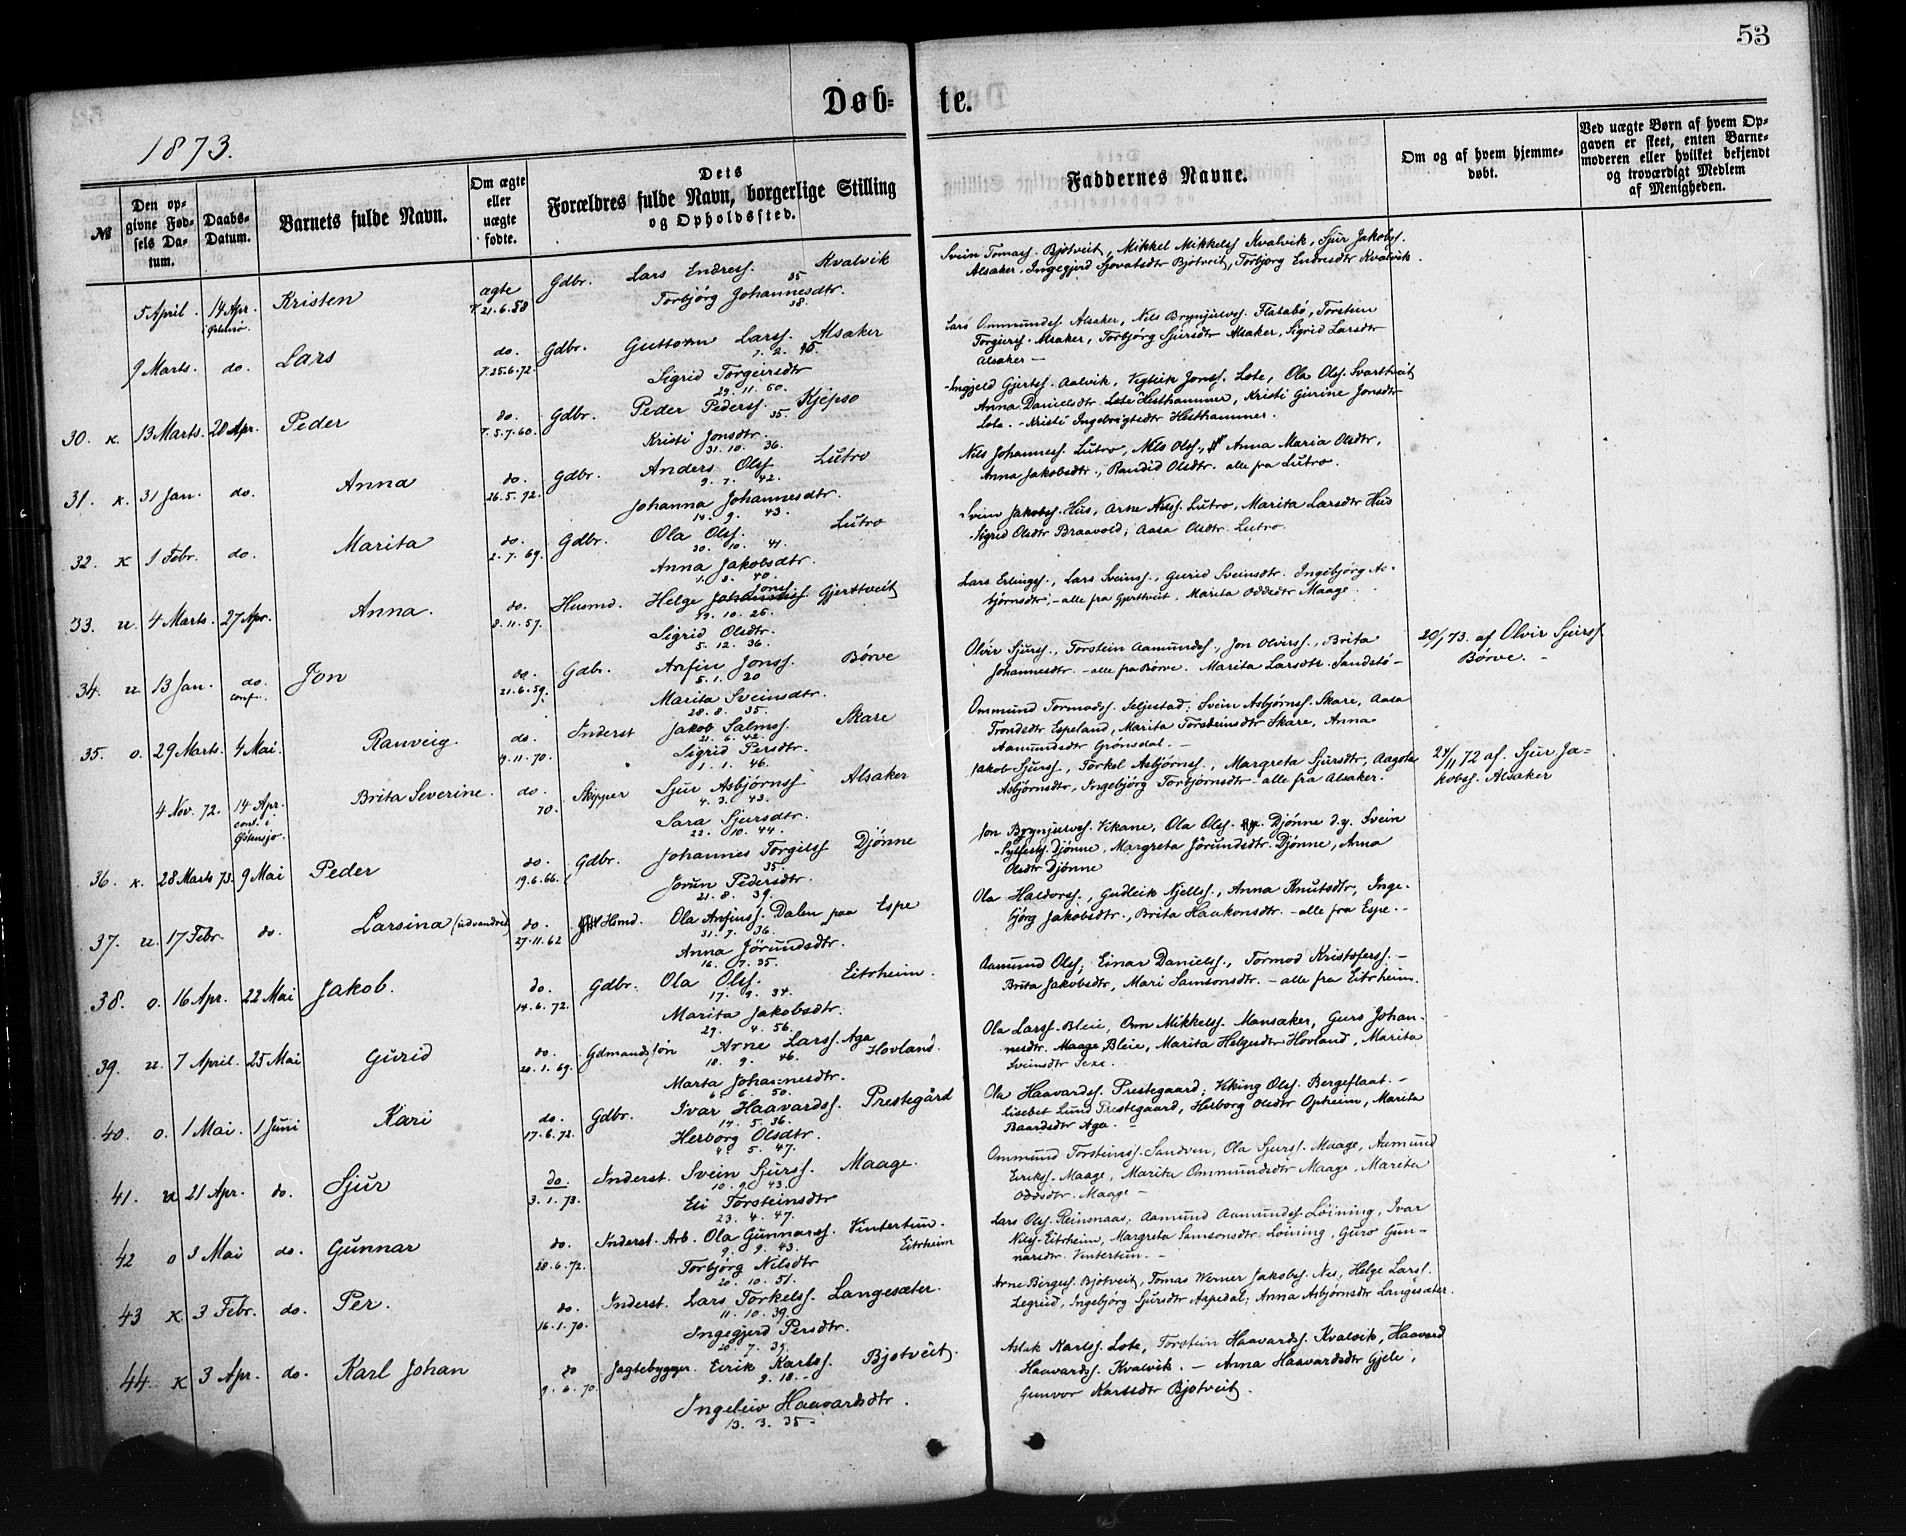 53
Døb= te.
1873.
№
Den op-
givne Fød-
sels Da-
tum.
Daabs-
Datum.
Barnets fulde Navn.
Om ægte
eller
uægte
fødte.
Dets
Forældres fulde Navn, borgerlige Stilling
og Opholdssted.
Faddernes Navne.
Om og af hvem hjemme-
døbt.
Ved uægte Børn af hvem Op-
gaven er skeet, enten Barne-
moderen eller hvilket bekjendt
og troværdigt Medlem
af Menigheden.
5 April. 14 Apr. Kristen ægte Gdbr. Lars Endress. Kvalvik
35
7.21.6.58 Torbjörg Johannesdtr.
38.
Svein Tomass. Bjotveit, Mikkel Mikkelss Kvalvik, Sjur Jakobss.
Alsaker. Ingegjerd Sjovatsdtr Bjotveit, Torbjorg Endresdtr Kvalvik.
9 Marts. do. Lars do. Gdbr. Guttorm Larss. Alsaker
7.25.6.72. Sigrid Torgeirsdtr
29. 11. 50.
Lars Ommundss Alsaker, Nils Brynjulvss. Flatabø, Torstein
Torgeirss. Alsaker, Torbjörg Sjursdtr Alsaker, Sigrid Larsdtr
Alsaker —
30. K. 13 Marts. 20 Apr. Peder do. Gdbr. Peder Pederss. Kjepso
35.
7.5.7.60. Kristi Jonsdtr.
31. 10. 36.
Ingjeld Gjertss. Aalvik, Vigleik Jonss. Lote, Ola Olss. Svartveit
Anna Danielsdtr. Lote Hesthammer, Kristi Gurine Jonsdtr
Lote. - Kristi Ingebrigtsdtr Hesthammer.
31. K. 31 Jan. do. Anna do. Gdbr. Anders Olss Lutro
9. 7. 42.
26.5.72. Johanna Johannesdtr.
14. 9. 43.
Nils Johanness. Lutro, Nils Olss., Anna Maria Olsdtr,
Anna Jakobsdtr., Randid Olsdtr. alle fra Lutro.
32. K 1 Febr. do. Marita do. Gdbr. Ola Olss. Lutro
30. 10. 41.
2.7.69. Anna Jakobsdtr.
1. 8. 40.
Svein Jakobss. Hus, Arne Nilss. Lutro, Marita Larsdtr Hus
Sigrid Olsdtr Braavold; Aasa Olsdtr. Lutro.
33. u. 4 Marts. 27 Apr. Anna. do. Husmd. Helge Jonss. Gjerttveit
10. 26.
8.11.57. Sigrid Olsdtr.
5. 12. 36.
Lars Erlingss., Lars Sveinss., Gurid Sveinsdtr. Ingebjörg As-
bjørnsdtr; - alle fra Gjerttveit, Marita Oddsdtr Maage.
34. u. 13 Jan. do. conf. Jon do. Gdbr. Arnfin Jonss. Börve
5. 1. 20
21.6.59. Marita Sveinsdtr.
28. 8. 35.
Olvir Sjurss., Torstein Aamundss., Jon Olvirss., Brita
Johannesdtr. - alle fra Børve. Marita Larsdtr. Sandstø -
20/1 73. af Olvir Sjurss
Börve. -
35. o. 29 Marts. 4 Mai. Ranveig. do. Inderst Jakob Salmss. Skare
21. 6. 42.
9.11.70. Sigrid Persdtr.
1. 1. 46.
Ommund Tormodss. Seljestad; Svein Asbjørnss. Skare, Aasa
Trondsdtr Espeland, Marita Torsteinsdtr Skare, Anna
Aamundsdtr Grönsdal. -
4 Nov. 72. 14 Apr. Brita Severine. do. Skipper Sjur Asbjørnss Alsaker
conf. i
Østensjø. 4. 3. 43.
70. Sara Sjursdtr.
22. 10. 44.
Jakob Sjurss, Torkel Asbjørnss., Margreta Sjursdtr, Aagota
Asbjørnsdtr, Ingebjörg Torbjørnsdtr - alle fra Alsaker.
24/11 72 af. Sjur Ja=
kobss. Alsaker
36. K. 28 Marts 73. 9 Mai Peder do. Gdbr. Johannes Torgilss Djönne
35.
19.6.66. Jorun Pedersdtr.
21. 8. 39.
Jon Brynjulvss. Vikane, Ola Olss. Djönne d.y. Svein
Sylfestss. Djönne, Margreta Jörundsdtr. Djönne, Anna
Olsdtr Djönne
37. u. 17 Febr. do. Larsina (udvandret) do. Hsmd. Ola Arnfinss. Dalen paa Espe
31. 7. 36.
27.11.62 Anna Jörundsdtr.
16. 7. 35.
Ola Haldorss., Gudleik Njellss., Anna Knutsdtr, Inge-
bjørg Jakobsdtr., Brita Haakonsdtr. - alle fra Espe. -
38. o. 16 Apr. 22 Mai Jakob. do. Gdbr. Ola Olss. Eitrheim.
17. 9. 34.
14.6.72. Marita Jakobsdtr.
27. 4. 56.
Aamund Olss; Einar Danielss., Tormod Kristoferss. -
Brita Jakobsdtr, Mari Samsonsdtr. - alle fra Eitrheim.
39. u. 7 April. 25 Mai Gurid do. Gdmandssøn Arne Larss. Aga
Hovland.
10. 9. 46.
20.1.69. Marta Johannesdtr.
6. 6. 50.
Ola Larss. Bleie, Omm Mikkelss. Mansaker, Guro Johan-
nesdtr. Maage, Bleie, Marita Helgesdtr Hovland, Marita
Sveinsdtr Sexe.
40. o. 1 Mai. 1 Juni Kari do. Gdbr. Ivar Haavardss. Prestegård
14. 5. 36.
17.6.72. Herborg Olsdtr.
4. 5. 47.
Ola Haavardss. Prestegaard; Viking Olss. Bergeflaat. -
Lisebet Lund Prestegaard, Herborg Olsdtr Opheim, Marita
Baardsdtr Aga. -
41. u 21 Apr. do. Sjur do. Inderst. Svein Sjurss. Maage.
10. 9. 43.
3.1.73. Eli Torsteinsdtr
23. 4. 47.
Ommund Torsteinss. Sandven, Ola Sjurss. Maage, Aamund
Eirikss. Maage, Marita Ommundsdtr Maage, Marita
Oddsdtr. Maage -
42 o 3 Mai do. Gunnar do. Inderst. Arb. Ola Gunnarss. Vintertun.
Eitrheim
9. 9. 43.
28.6.72. Torbjörg Nilsdtr
20. 10. 51.
Lars Olss. Reinsnaas; Aamund Aamundss Löining, Ivar
Nilss. Eitrheim, Margreta Samsonsdtr. Löining, Guro Gun-
narsdtr. Vintertun. -
43 K 3 Febr. do. Per. do. Inderst. Lars Torkelss. Langesæter.
11. 10. 39.
16.1.70. Ingegjerd Persdtr.
20. 7. 39.
Arne Birgess. Bjotveit, Tomas Werner Jakobss. Nes; Helge Larss.
Legreid, Ingebjörg Sjursdtr Aspedal; Anna Asbjörnsdtr Langesæter.
44 K 3 Apr. do. Karl Johan do Jagtebygger. Eirik Karlss. Bjotveit.
9. 10.
9.6.70. Ingeleiv Haavardsdtr.
13. 3. 35.
Aslak Karlss. Lote, Torstein Haavardss. Kvalvik, Haavard
Haavardss. Kvalvik. - Anna Haavardsdtr Gjele,
Gunvor Karlsdtr Bjotveit.